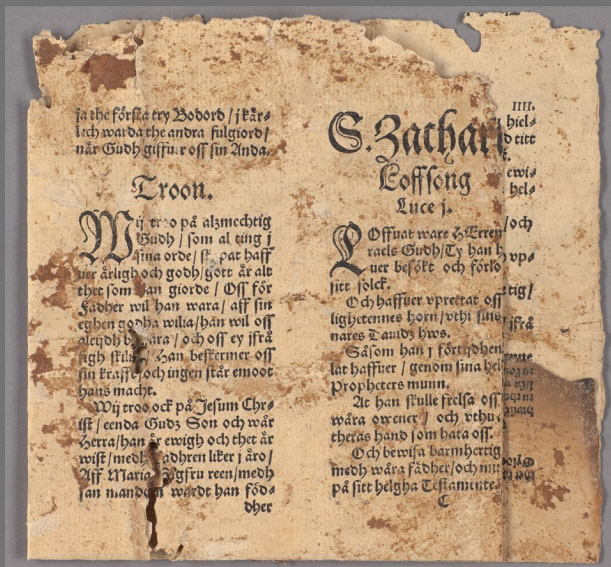 ja the första try Bodord / j kär-
lech warda the andra fulgiord /
när Gudh giffuer oss sin Anda.
Troon.
Wij troo på alzmechtig
Gudh / som al ting j
sina orde / skapat haff
uer ärligh och godh / gott är alt
thet som han giorde / Oss för
Fadher wil han wara / aff sin
eghen godha wilia / han wil oss
altijdh bewara / och oss ey ifrå
sigh skilia / Han beskermer oss
sin krafft / och ingen står emoot
hans macht.
Wij troo ock på Jesum Chr-
ist / eenda Gudz Son och wår
Herra / han är ewigh och thet är
wist / medh Fadhren liker j äro /
Aff Maria Jügfru reen / medh
san mandom wardt han föd-
dher
S. Zachari
Loffsong
Luce j.
LOffuat ware HErren
raels Gudh / Ty han h
uer besökt och förlo
sitt folck.
Och haffuer vprettat oss
lighetennes horn / vthi sins
nares Dauidz hws.
Såsom han j förtijdhen
lat haffuer / genom sina hel
Propheters munn.
At han skulle frelsa oss
wåra owener / och vthu
theras hand som hata oss.
Och bewisa barmhertig
medh wåra fädher / och
på sitt helgha Testamente
C
IIII.
hiel-
d titt
ewi-
hel-
/ och
vpe-
tig /
ifrå